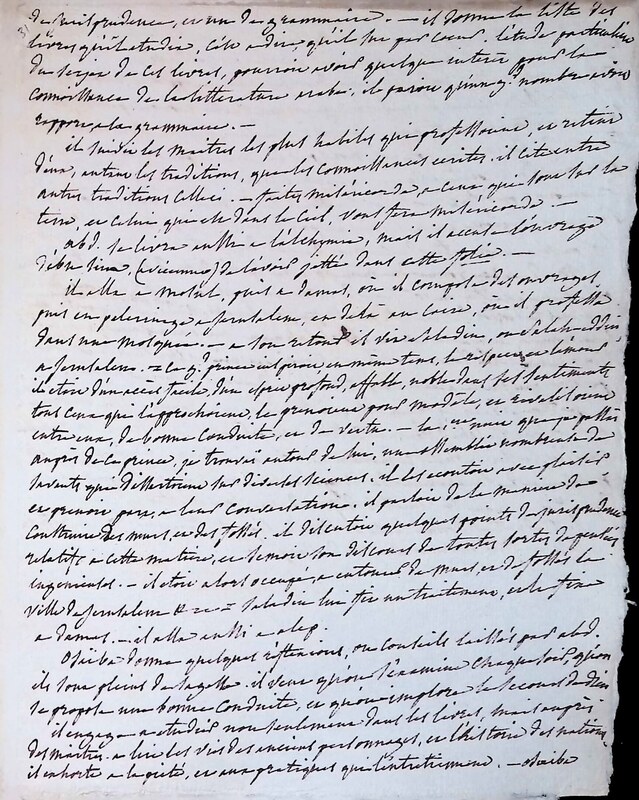 de jurisprudence, et un de grammaire. — il donne la liste des
livres qu'il etudia, c'est a dire, qu'il sut par coeur. l'etude particuliere
du sujet de ces livres, pourroit avoir quelque interet pour la
connoissance de la litterature arabe. il paroit qu'un g.d nombre avoit
rapport a la grammaire. —
il suivit les maitres les plus habiles qui professaient, et retint
d'eux, autant les traditions, que les connoissances ecrites. il cite entre
autres traditions celles ci. — faites misericorde, a ceux qui sont sur la
terre, et celui qui est dans le ciel, vous fera misericorde. —
abd. se livra aussi a l'alchymie, mais il accuse l'ouvrage
d'ebn sina, (avicenne) de l'avoir jetté dans cette folie. —
il alla a mosul, puis a damas, où il composa des ouvrages,
puis en pelerinage a jerusalem, et delà au caire, où il professa
dans une mosquée. — a son retour il vit saladin, ou salah-eddin
a jerusalem. — ce g.d prince inspiroit en même tems, le respect et l'amour
il etoit d'un accès facile, d'un esprit profond, affable, noble dans ses sentiments
tous ceux qui l'approchoient, le prenoient pour modèle, et rivalisoient
entre eux, de bonne conduite, et de vertu. — la nuit que je passai
auprès de ce prince, je trouvai autour de lui, une assemblée nombreuse de
savants qui dissertoient sur diverses sciences. il les ecoutoit avec plaisir
et prenoit part, a leur conversation. il parloit de la maniere de
construire des murs, et des fossés. il discutoit quelques points de jurisprudence
relatifs a cette matiere, et semoit son discours de toutes sortes de pensées
ingenieuses. — il etoit alors occupé, a entourer de murs, et de fossés la
ville de jerusalem saladin lui fit un traitement, et le fixa
a damas. — il alla aussi a alep.
Osaiba donne quelques reflexions, ou conseils laissés par abd.
ils sont pleins de sagesse. il veut qu'on s'examine chaque soir, qu'on
se propose une bonne conduite, et qu'on implore le secours de Dieu
il engage a etudier non seulement dans les livres, mais auprès
des maitres. a lire les vies des anciens personnages, et l'histoire des nations.
il exhorte a la pieté, et aux pratiques qui l'entretiennent. — osaiba